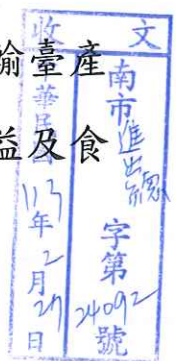 輸臺產
益及食
收文
南市進出總字第24092號
中華民國113年2月27日